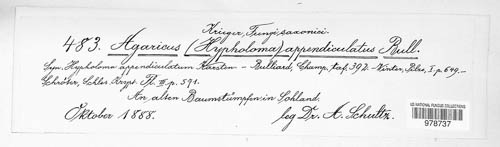 Krieger, Fungi saxonici.
483. Agaricus (Hypholoma) appendiculatus Bull.
Syn. Hypholoma appendiculatum Karsten – Bulliard, Champ. taf. 392. – Winter, Pilze, I. p. 649. –
Schröter, Schles. Krypt. Fl. III. p. 571.
An alten Baumstümpfen in Sohland.
Oktober 1888. leg. Dr. A. Schultz.
US NATIONAL FUNGUS COLLECTIONS
978737